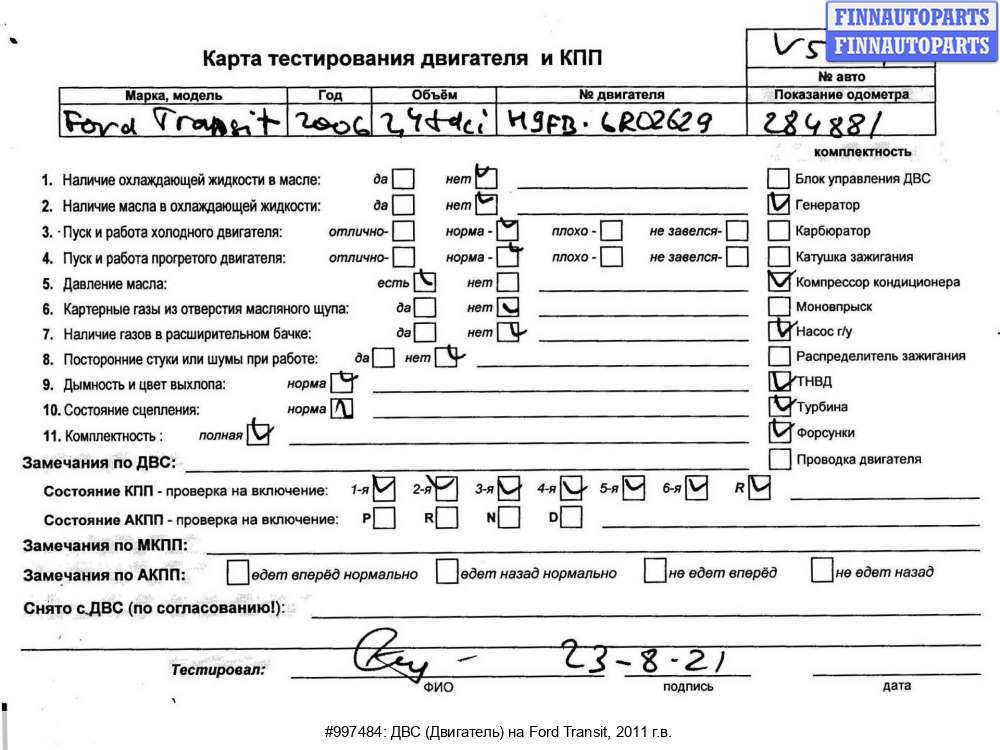 FINNAUTOPARTS
FINNAUTOPARTS
V5
Карта тестирования двигателя и КПП
№ авто
Марка, модель Год Объём № двигателя Показание одометра
Ford Transit 2006 2,4tdci H9FB. 6R02629 284881
комплектность
1. Наличие охлаждающей жидкости в масле: да нет Блок управления ДВС
2. Наличие масла в охлаждающей жидкости: да нет Генератор
3. Пуск и работа холодного двигателя: отлично- норма - плохо - не завелся- Карбюратор
4. Пуск и работа прогретого двигателя: отлично- норма - плохо - не завелся- Катушка зажигания
5. Давление масла: есть нет Компрессор кондиционера
6. Картерные газы из отверстия масляного щупа: да нет Моновпрыск
7. Наличие газов в расширительном бачке: да нет Насос г/у
8. Посторонние стуки или шумы при работе: да нет Распределитель зажигания
9. Дымность и цвет выхлопа: норма ТНВД
10. Состояние сцепления: норма Турбина
11. Комплектность : полная Форсунки
Замечания по ДВС: Проводка двигателя
Состояние КПП - проверка на включение: 1-я 2-я 3-я 4-я 5-я 6-я R
Состояние АКПП - проверка на включение: P R N D
Замечания по МКПП:
Замечания по АКПП: едет вперёд нормально едет назад нормально не едет вперёд не едет назад
Снято с ДВС (по согласованию!):
Тестировал: 23-8-21
ФИО подпись дата
#997484: ДВС (Двигатель) на Ford Transit, 2011 г.в.